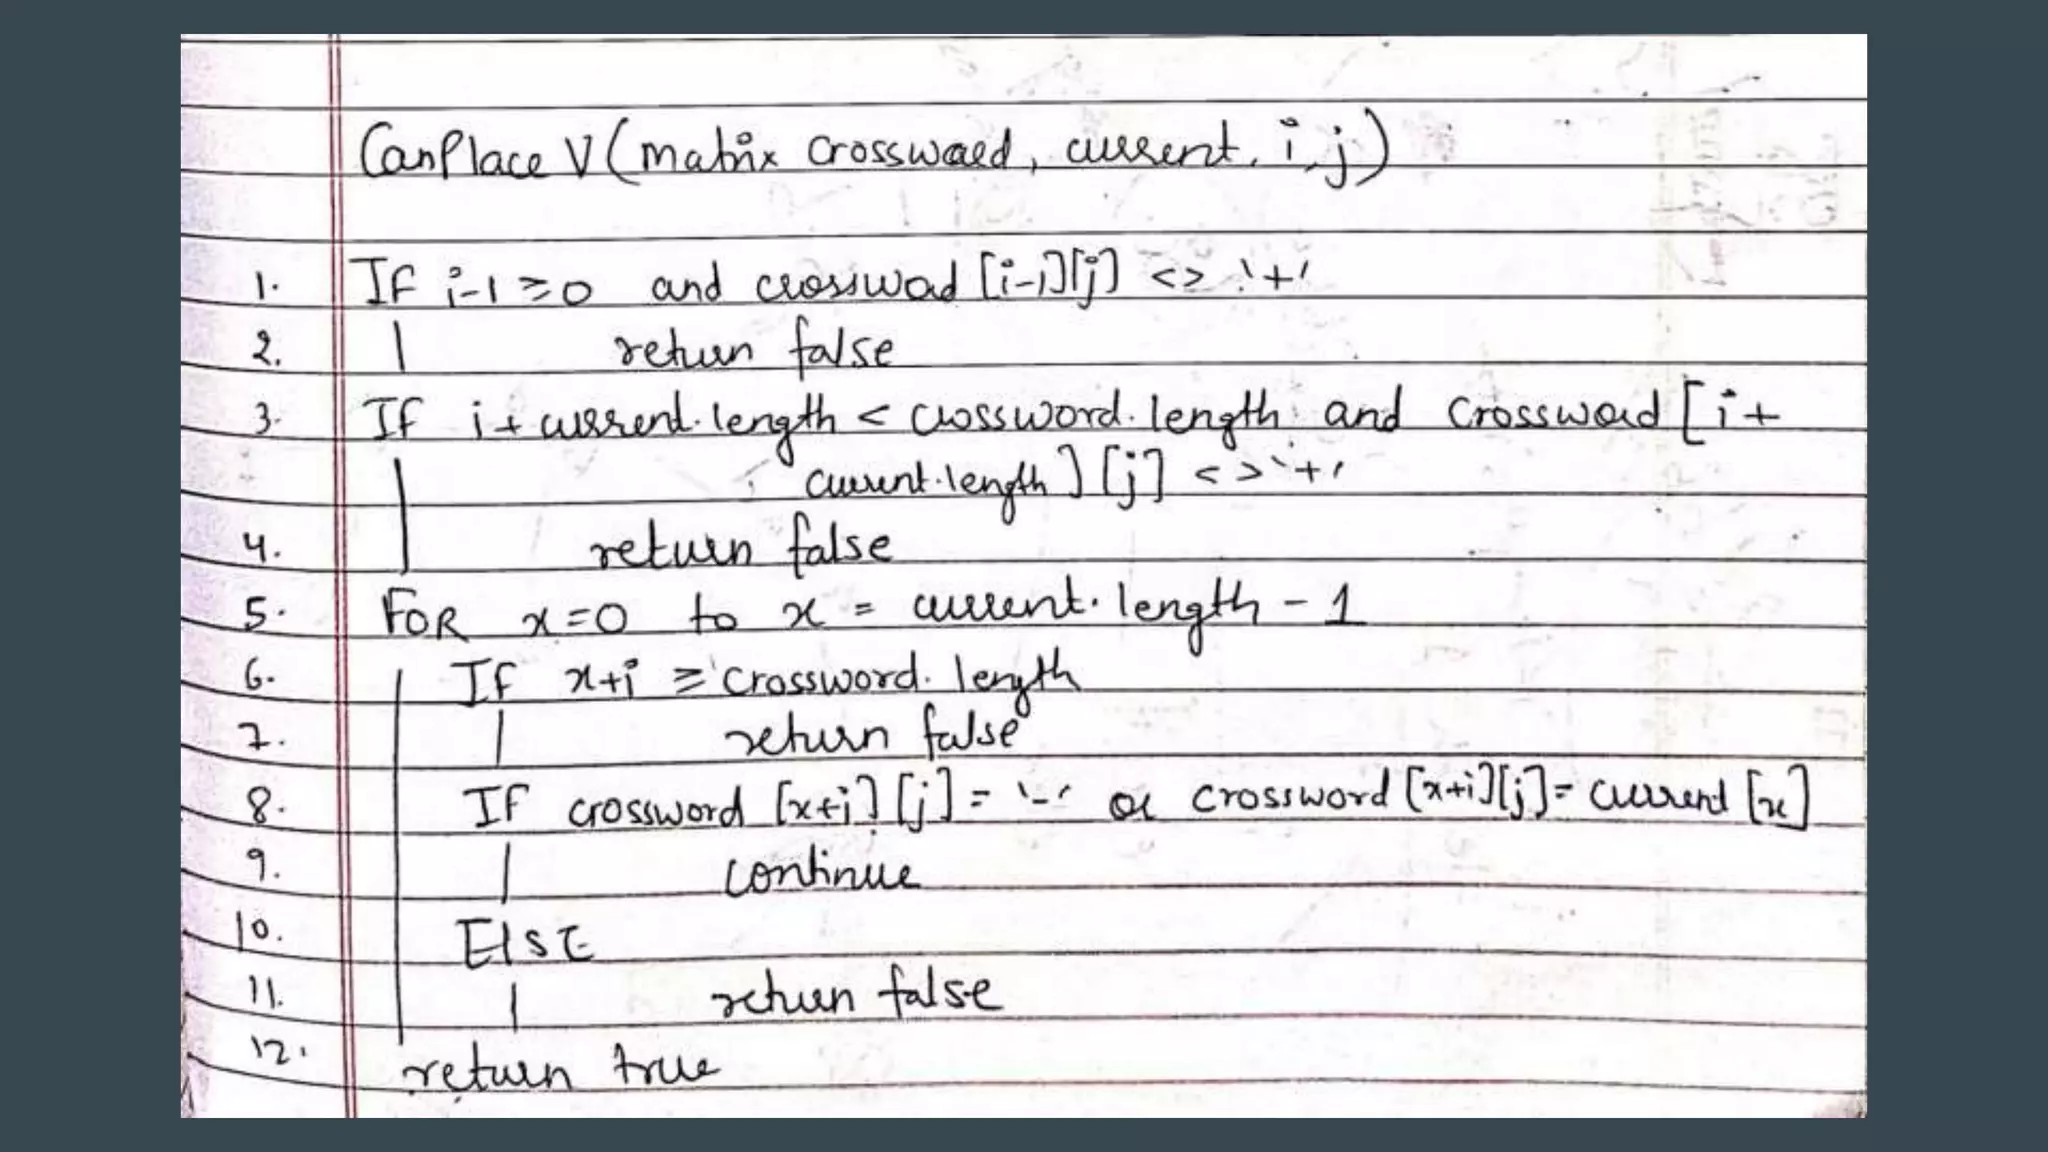 CanPlace V (matrix crossword, current, i, j)
1. If i-1 ≥ 0 and crossword [i-1][j] <> '+'
2. return false
3. If i + current.length < crossword.length and crossword [i +
current.length] [j] <> '+'
4. return false
5. FOR x=0 to x = current.length - 1
6. If x+i ≥ crossword.length
7. return false
8. If crossword [x+i] [j] = '-' or crossword [x+i][j] = current [x]
9. continue
10. ElsE
11. return false
12. return true